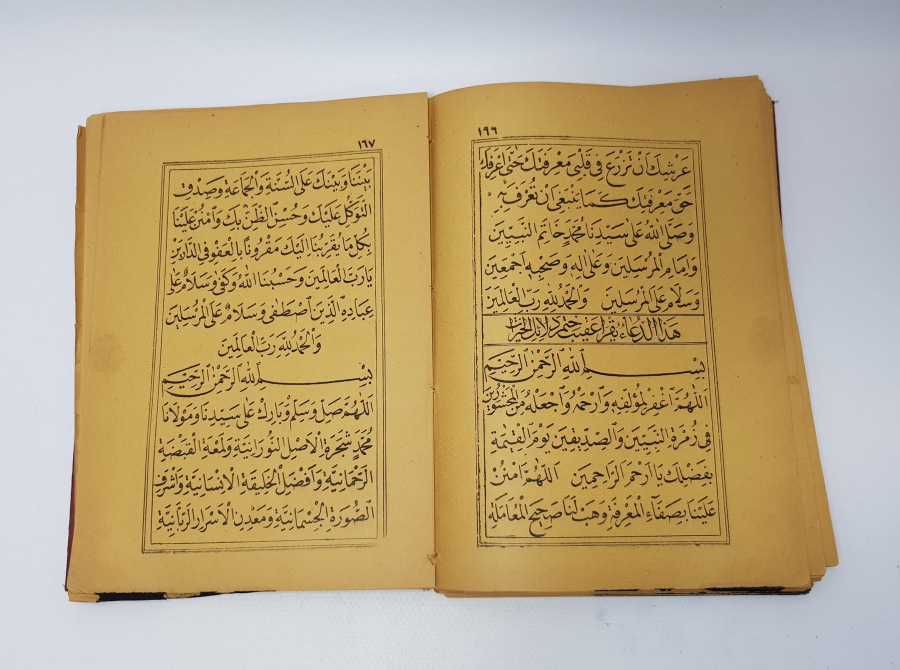 ١٩٦
عَرْشِكَ اَنْ تَزْرَعَ فِى قَلْبِى مَعْرِفَتَكَ حَتّٰى اَعْرِفَكَ
حَقَّ مَعْرِفَتِكَ كَمَا يَنْبَغِى اَنْ تُعْرَفَ بِهِ
وَصَلَّى اللّٰهُ عَلٰى سَيِّدِنَا مُحَمَّدٍ خَاتَمِ النَّبِيِّينَ
وَاِمَامِ الْمُرْسَلِينَ وَعَلٰى اٰلِهِ وَصَحْبِهِ اَجْمَعِينَ
وَسَلَامٌ عَلَى الْمُرْسَلِينَ وَالْحَمْدُ لِلّٰهِ رَبِّ الْعَالَمِينَ
هٰذَا الدُّعَاءُ يُقْرَأُ عَقِيبَ خَتْمِ دَلَائِلِ الْخَيْرَاتِ
بِسْمِ اللّٰهِ الرَّحْمٰنِ الرَّحِيمِ
اَللّٰهُمَّ اغْفِرْ لِمُؤَلِّفِهِ وَارْحَمْهُ وَاجْعَلْهُ مِنَ الْمَحْشُورِينَ
فِى زُمْرَةِ النَّبِيِّينَ وَالصِّدِّيقِينَ يَوْمَ الْقِيٰمَةِ
بِفَضْلِكَ يَا اَرْحَمَ الرَّاحِمِينَ اَللّٰهُمَّ امْنُنْ
عَلَيْنَا بِصَفَاءِ الْمَعْرِفَةِ وَهَبْ لَنَا صَحِيحَ الْمُعَامَلَةِ
١٦٧
بَيْنَنَا وَبَيْنَكَ عَلَى السُّنَّةِ وَالْجَمَاعَةِ وَصِدْقِ
التَّوَكُّلِ عَلَيْكَ وَحُسْنِ الظَّنِّ بِكَ وَامْنُنْ عَلَيْنَا
بِكُلِّ مَا يُقَرِّبُنَا اِلَيْكَ مَقْرُونًا بِالْعَفْوِ فِى الدَّارَيْنِ
يَا رَبَّ الْعَالَمِينَ وَحَسْبُنَا اللّٰهُ وَكَفٰى وَسَلَامٌ عَلٰى
عِبَادِهِ الَّذِينَ اصْطَفٰى وَسَلَامٌ عَلَى الْمُرْسَلِينَ
وَالْحَمْدُ لِلّٰهِ رَبِّ الْعَالَمِينَ
بِسْمِ اللّٰهِ الرَّحْمٰنِ الرَّحِيمِ
اَللّٰهُمَّ صَلِّ وَسَلِّمْ وَبَارِكْ عَلٰى سَيِّدِنَا وَمَوْلَانَا
مُحَمَّدٍ شَجَرَةِ الْاَصْلِ النُّورَانِيَّةِ وَلَمْعَةِ الْقَبْضَةِ
الرَّحْمَانِيَّةِ وَاَفْضَلِ الْخَلِيقَةِ الْاِنْسَانِيَّةِ وَاَشْرَفِ
الصُّورَةِ الْجِسْمَانِيَّةِ وَمَعْدِنِ الْاَسْرَارِ الرَّبَّانِيَّةِ